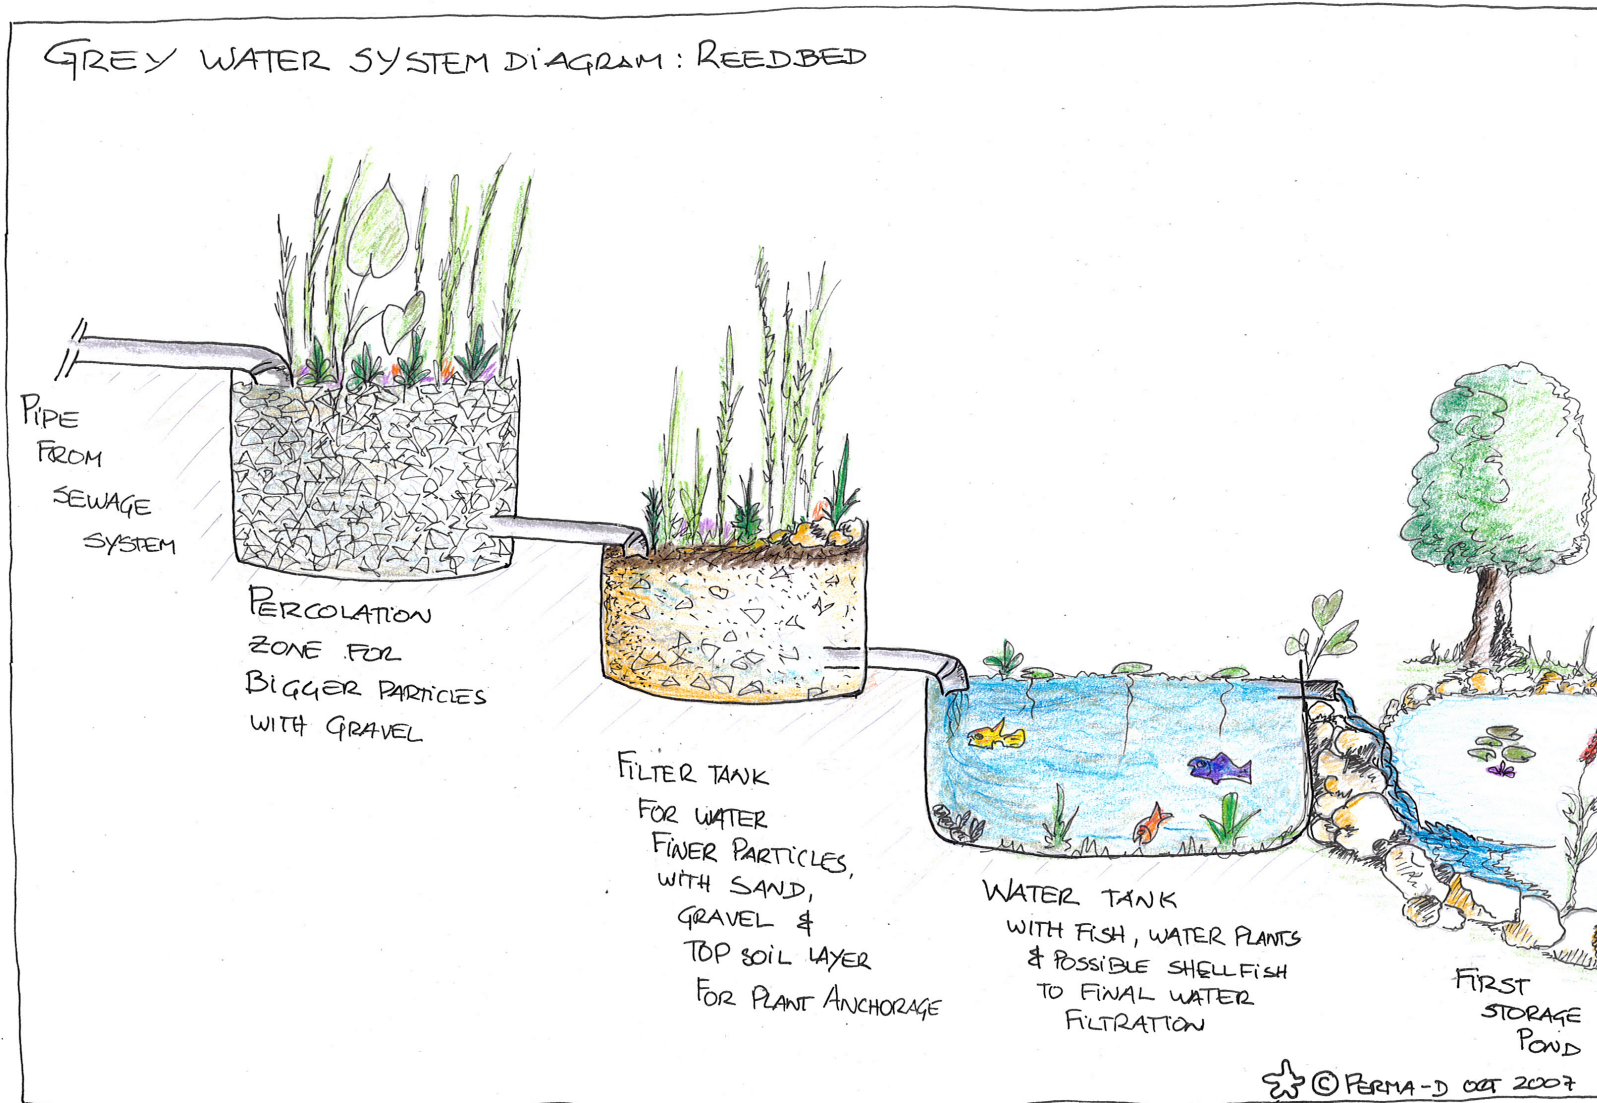 GREY WATER SYSTEM DIAGRAM: REEDBED
PIPE
FROM
SEWAGE
SYSTEM
PERCOLATION
ZONE FOR
BIGGER PARTICLES
WITH GRAVEL
FILTER TANK
FOR WATER
FINER PARTICLES,
WITH SAND,
GRAVEL &
TOP SOIL LAYER
FOR PLANT ANCHORAGE
WATER TANK
WITH FISH, WATER PLANTS
& POSSIBLE SHELLFISH
TO FINAL WATER
FILTRATION
FIRST
STORAGE
POND
© PERMA-D OCT 2007